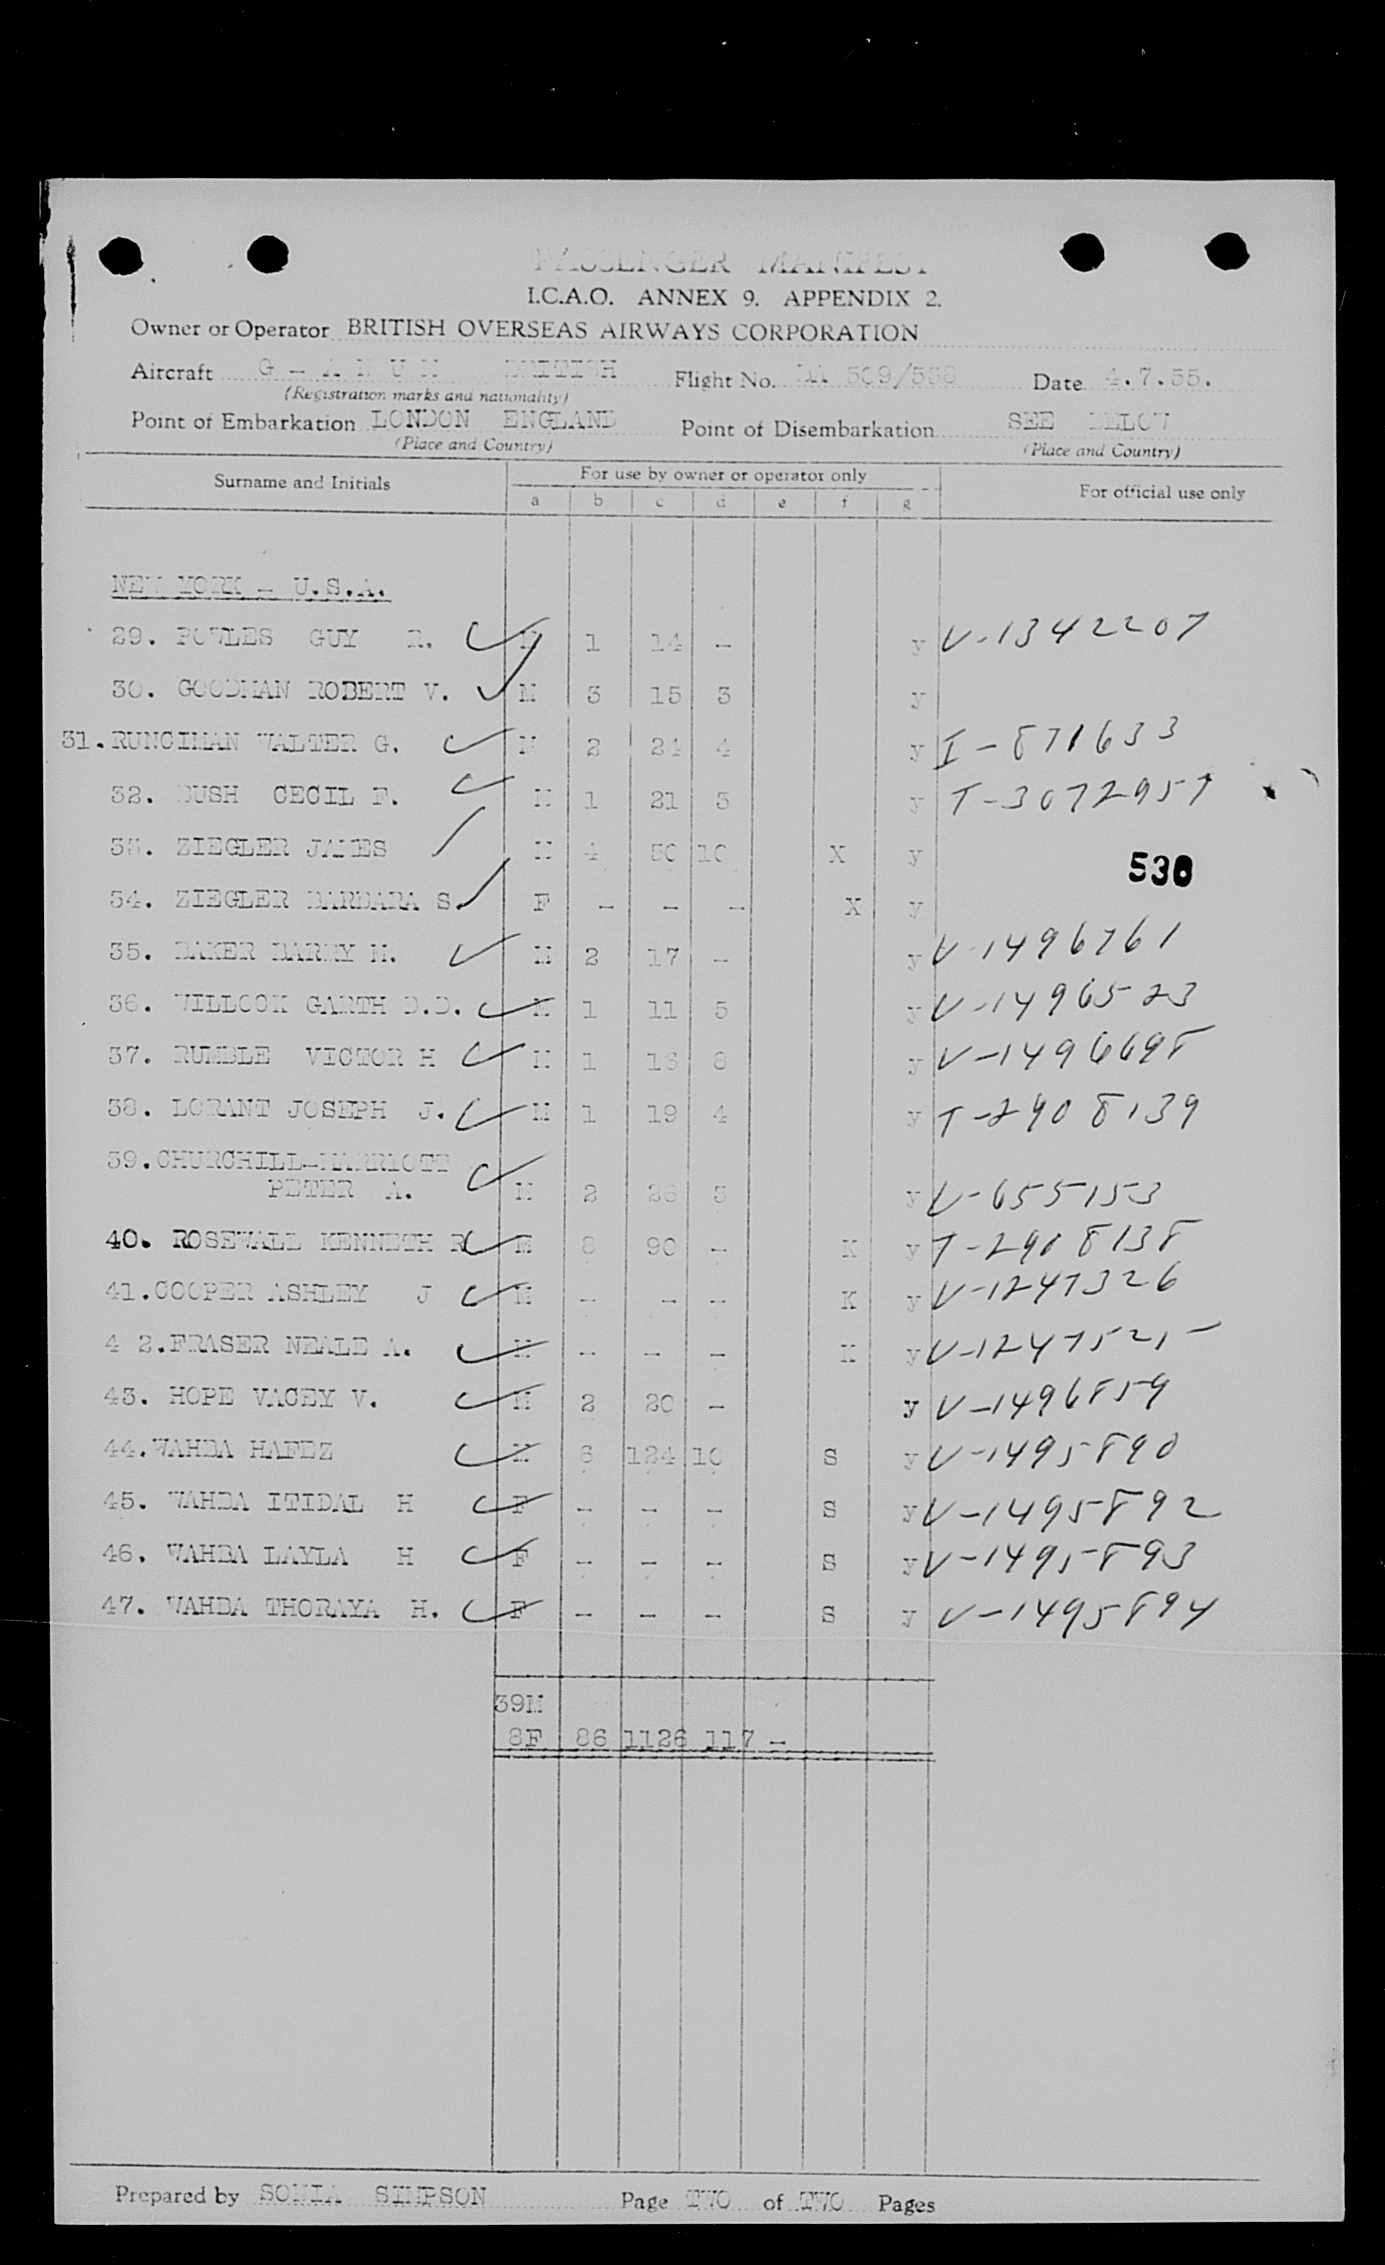 PASSENGER MANIFEST
I.C.A.O. ANNEX 9. APPENDIX 2.
Owner or Operator BRITISH OVERSEAS AIRWAYS CORPORATION
Aircraft G - A N U M BRITISH Flight No. BA 509/538 Date 4.7.55.
(Registration marks and nationality)
Point of Embarkation LONDON ENGLAND Point of Disembarkation SEE BELOW
(Place and Country) (Place and Country)
Surname and Initials For use by owner or operator only For official use only
a b c d e f g
NEW YORK - U.S.A.
29. POWLES GUY R. M 1 14 - y V-1342207
30. GOODMAN ROBERT V. M 3 15 3 y
31. RUNCIMAN WALTER G. M 2 24 4 y I-871633
32. BUSH CECIL F. M 1 21 5 y T-3072957
33. ZIEGLER JAMES M 4 50 10 X y
530
34. ZIEGLER BARBARA S. F - - - X y
35. BAKER BARRY M. M 2 17 - y V-1496761
36. WILLCOX GARTH D.D. M 1 11 5 y V-1496523
37. RUMBLE VICTOR H M 1 16 8 y V-1496698
38. LORANT JOSEPH J. M 1 19 4 y T-2908139
39. CHURCHILL-MARRIOTT
PETER A. M 2 26 5 y V-655153
40. ROSEWALL KENNETH R M 8 90 - K y T-2908138
41. COOPER ASHLEY J M - - - K y V-1247326
4 2. FRASER NEALE A. M - - - K y V-1247525
43. HOPE VACEY V. M 2 20 - y V-1496859
44. WAHBA HAFEZ M 6 124 10 S y V-1495890
45. WAHBA ITIDAL H F - - - S y V-1495892
46. WAHBA LAYLA H F - - - S y V-1495893
47. WAHBA THORAYA H. F - - - S y V-1495894
39M
8F 86 1126 117 -
Prepared by SONIA SIMPSON Page TWO of TWO Pages